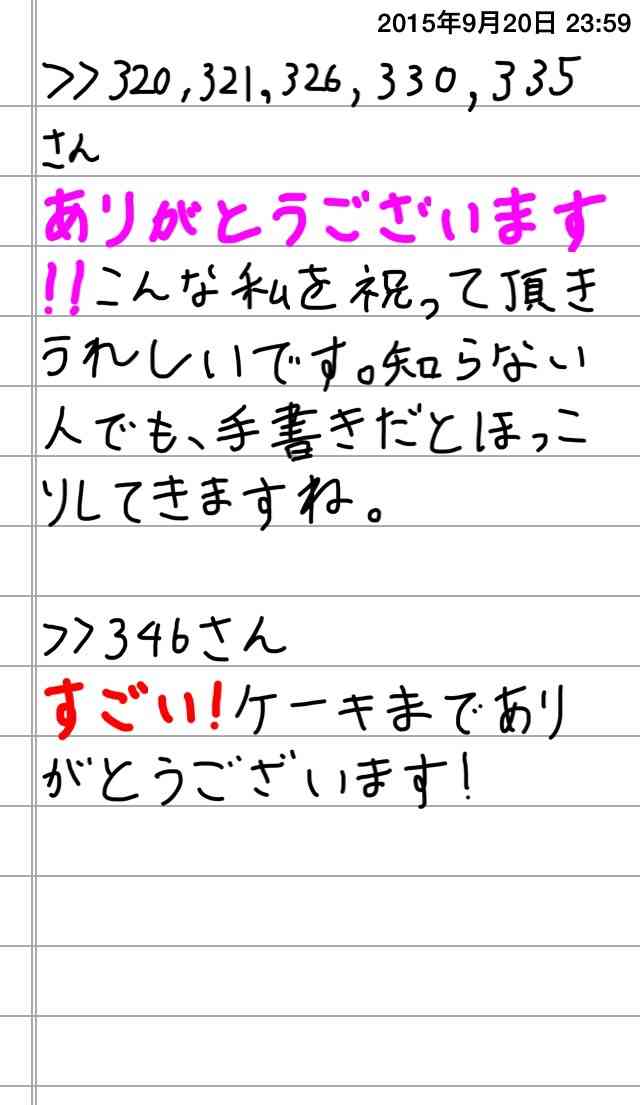 2015年9月20日 23:59
>>320,321,326,330,335
さん
ありがとうございます
!!こんな私を祝って頂き
うれしいです。知らない
人でも、手書きだとほっこ
りしてきますね。
>>346さん
すごい!ケーキまであり
がとうございます!